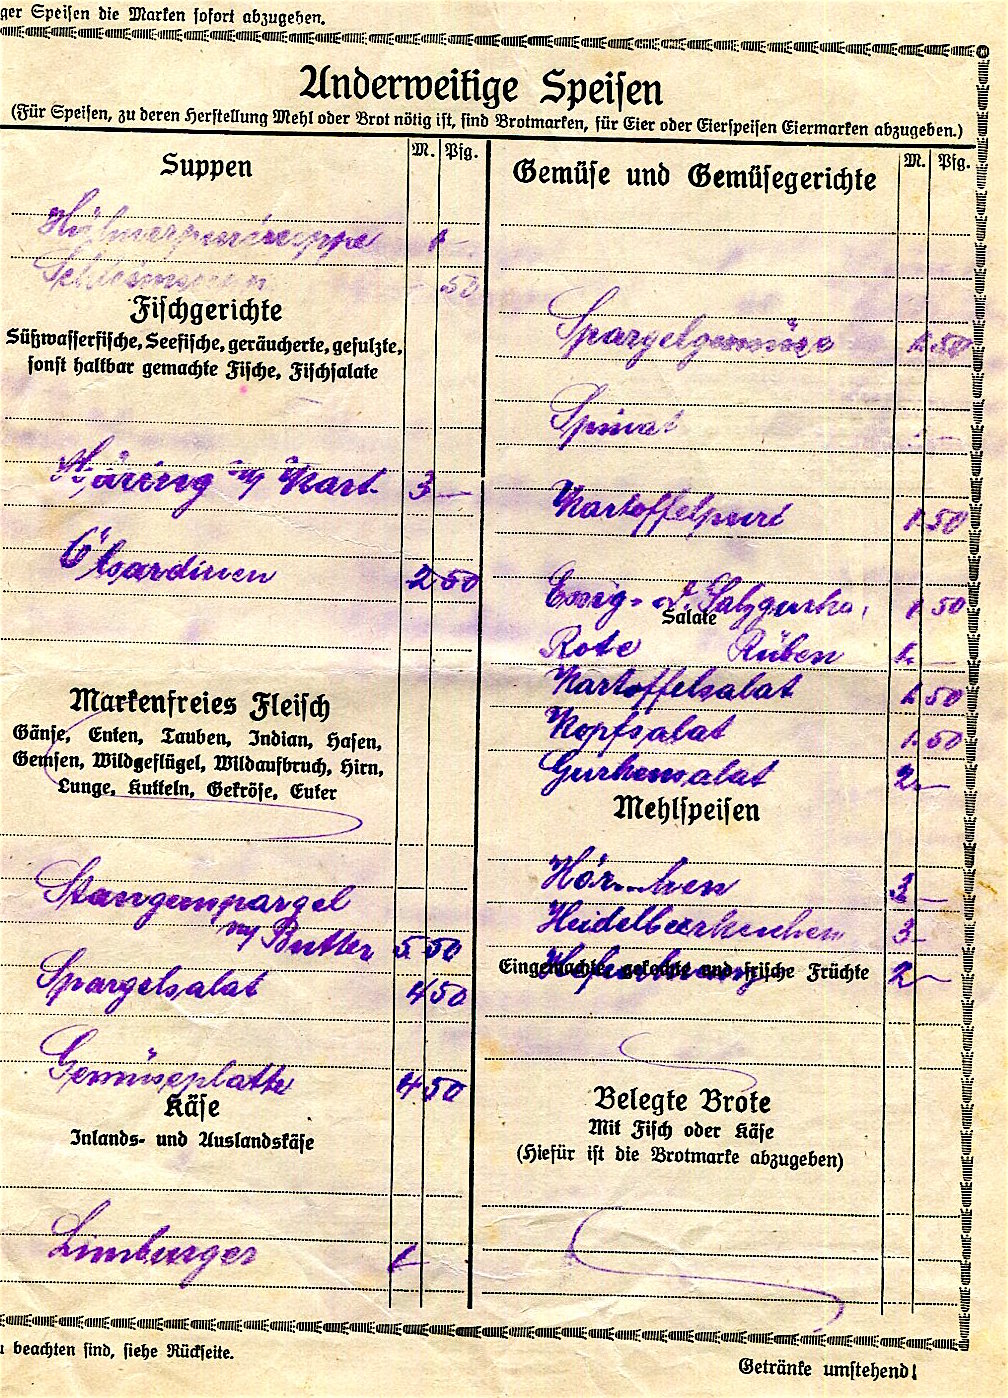 ger Speisen die Marken sofort abzugeben.
Anderweitige Speisen
(Für Speisen, zu deren Herstellung Mehl oder Brot nötig ist, sind Brotmarken, für Eier oder Eierspeisen Eiermarken abzugeben.)
Suppen M. Pfg.
1 —
50
Fischgerichte
Süßwasserfische, Seefische, geräucherte, gesulzte,
sonst haltbar gemachte Fische, Fischsalate
Häring m/ Kart. 3 —
Ölsardinen 2 50
Markenfreies Fleisch
Gänse, Enten, Tauben, Indian, Hasen,
Gemsen, Wildgeflügel, Wildaufbruch, Hirn,
Lunge, Kutteln, Gekröse, Euter
Stangenspargel
m/ Butter 5 50
Spargelsalat 4 50
Gemüseplatte 4 50
Käse
Inlands- und Auslandskäse
Limburger 1 —
Gemüse und Gemüsegerichte M. Pfg.
Spargelgemüse 1.50
Spinat
Kartoffelpuré 1 50
Essig- od. Salzgurke 1 50
Salate
Rote Rüben 1. —
Kartoffelsalat 1.50
Kopfsalat 1.50
Gurkensalat 2. —
Mehlspeisen
Hörnchen 3 —
Heidelbeerkuchen 3 —
Eingemachte, gekochte und frische Früchte 2 —
Belegte Brote
Mit Fisch oder Käse
(Hiefür ist die Brotmarke abzugeben)
u beachten sind, siehe Rückseite.
Getränke umstehend!